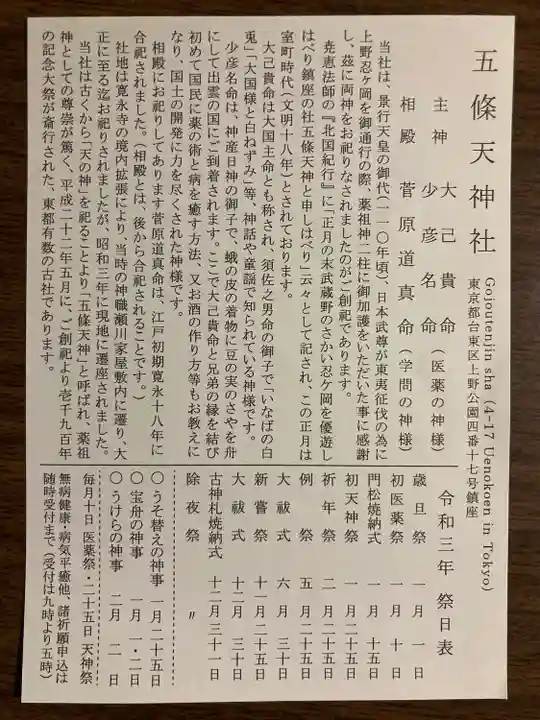 五條天神社
Gojoutenjin sha (4-17 Uenokoen in Tokyo)
東京都台東区上野公園四番十七号鎮座
主神 大己貴命
少彦名命(医薬の神様)
相殿 菅原道真命(学問の神様)
当社は、景行天皇の御代(一一〇年頃)、日本武尊が東夷征伐の為に
上野忍ヶ岡を御通行の際、薬祖神二柱に御加護をいただいた事に感謝
し、茲に両神をお祀りなされましたのがご創祀であります。
尭恵法師の『北国紀行』に「正月の末武蔵野のさかい忍ヶ岡に優遊し
はべり鎮座の社五條天神と申しはべり」云々として記され、この正月は
室町時代(文明十八年)とされております。
大己貴命は大国主命とも称され、須佐之男命の御子で「いなばの白
兎」「大国様と白ねずみ」等、神話や童謡で知られている神様です。
少彦名命は、神産日神の御子で、蛾の皮の着物に豆の実のさやを舟
にして出雲の国にご到着されます。ここで大己貴命と兄弟の縁を結び
初めて国民に薬の術と病を癒す方法、又お酒の作り方等もお教えに
なり、国土の開発に力を尽くされた神様です。
相殿にお祀りしてあります菅原道真命は、江戸初期寛永十八年に
合祀されました。(相殿とは、後から合祀されることです。)
社地は寛永寺の境内拡張により、当時の神職瀬川家屋敷内に遷り、大
正に至る迄お祀りされましたが、昭和三年に現地に遷座されました。
当社は古くから「天の神」を祀ることより「五條天神」と呼ばれ、薬祖
神としての尊崇が篤く、平成二十二年五月に、ご創祀より壱千九百年
の記念大祭が斎行された、東都有数の古社であります。
令和三年 祭日表
歳旦祭 一月 一日
初医薬祭 一月 十日
門松焼納式 一月 十五日
初天神祭 一月二十五日
祈年祭 二月二十五日
例祭 五月二十五日
大祓式 六月 三十日
新嘗祭 十一月二十五日
大祓式 十二月 三十日
古神札焼納式 十二月三十一日
除夜祭 〃
○うそ替えの神事 一月二十五日
○宝舟の神事 一月 一・二日
○うけらの神事 二月 二日
毎月十日 医薬祭・二十五日 天神祭
無病健康・病気平癒他 諸祈願申込は
随時受付まで(受付は九時より五時)